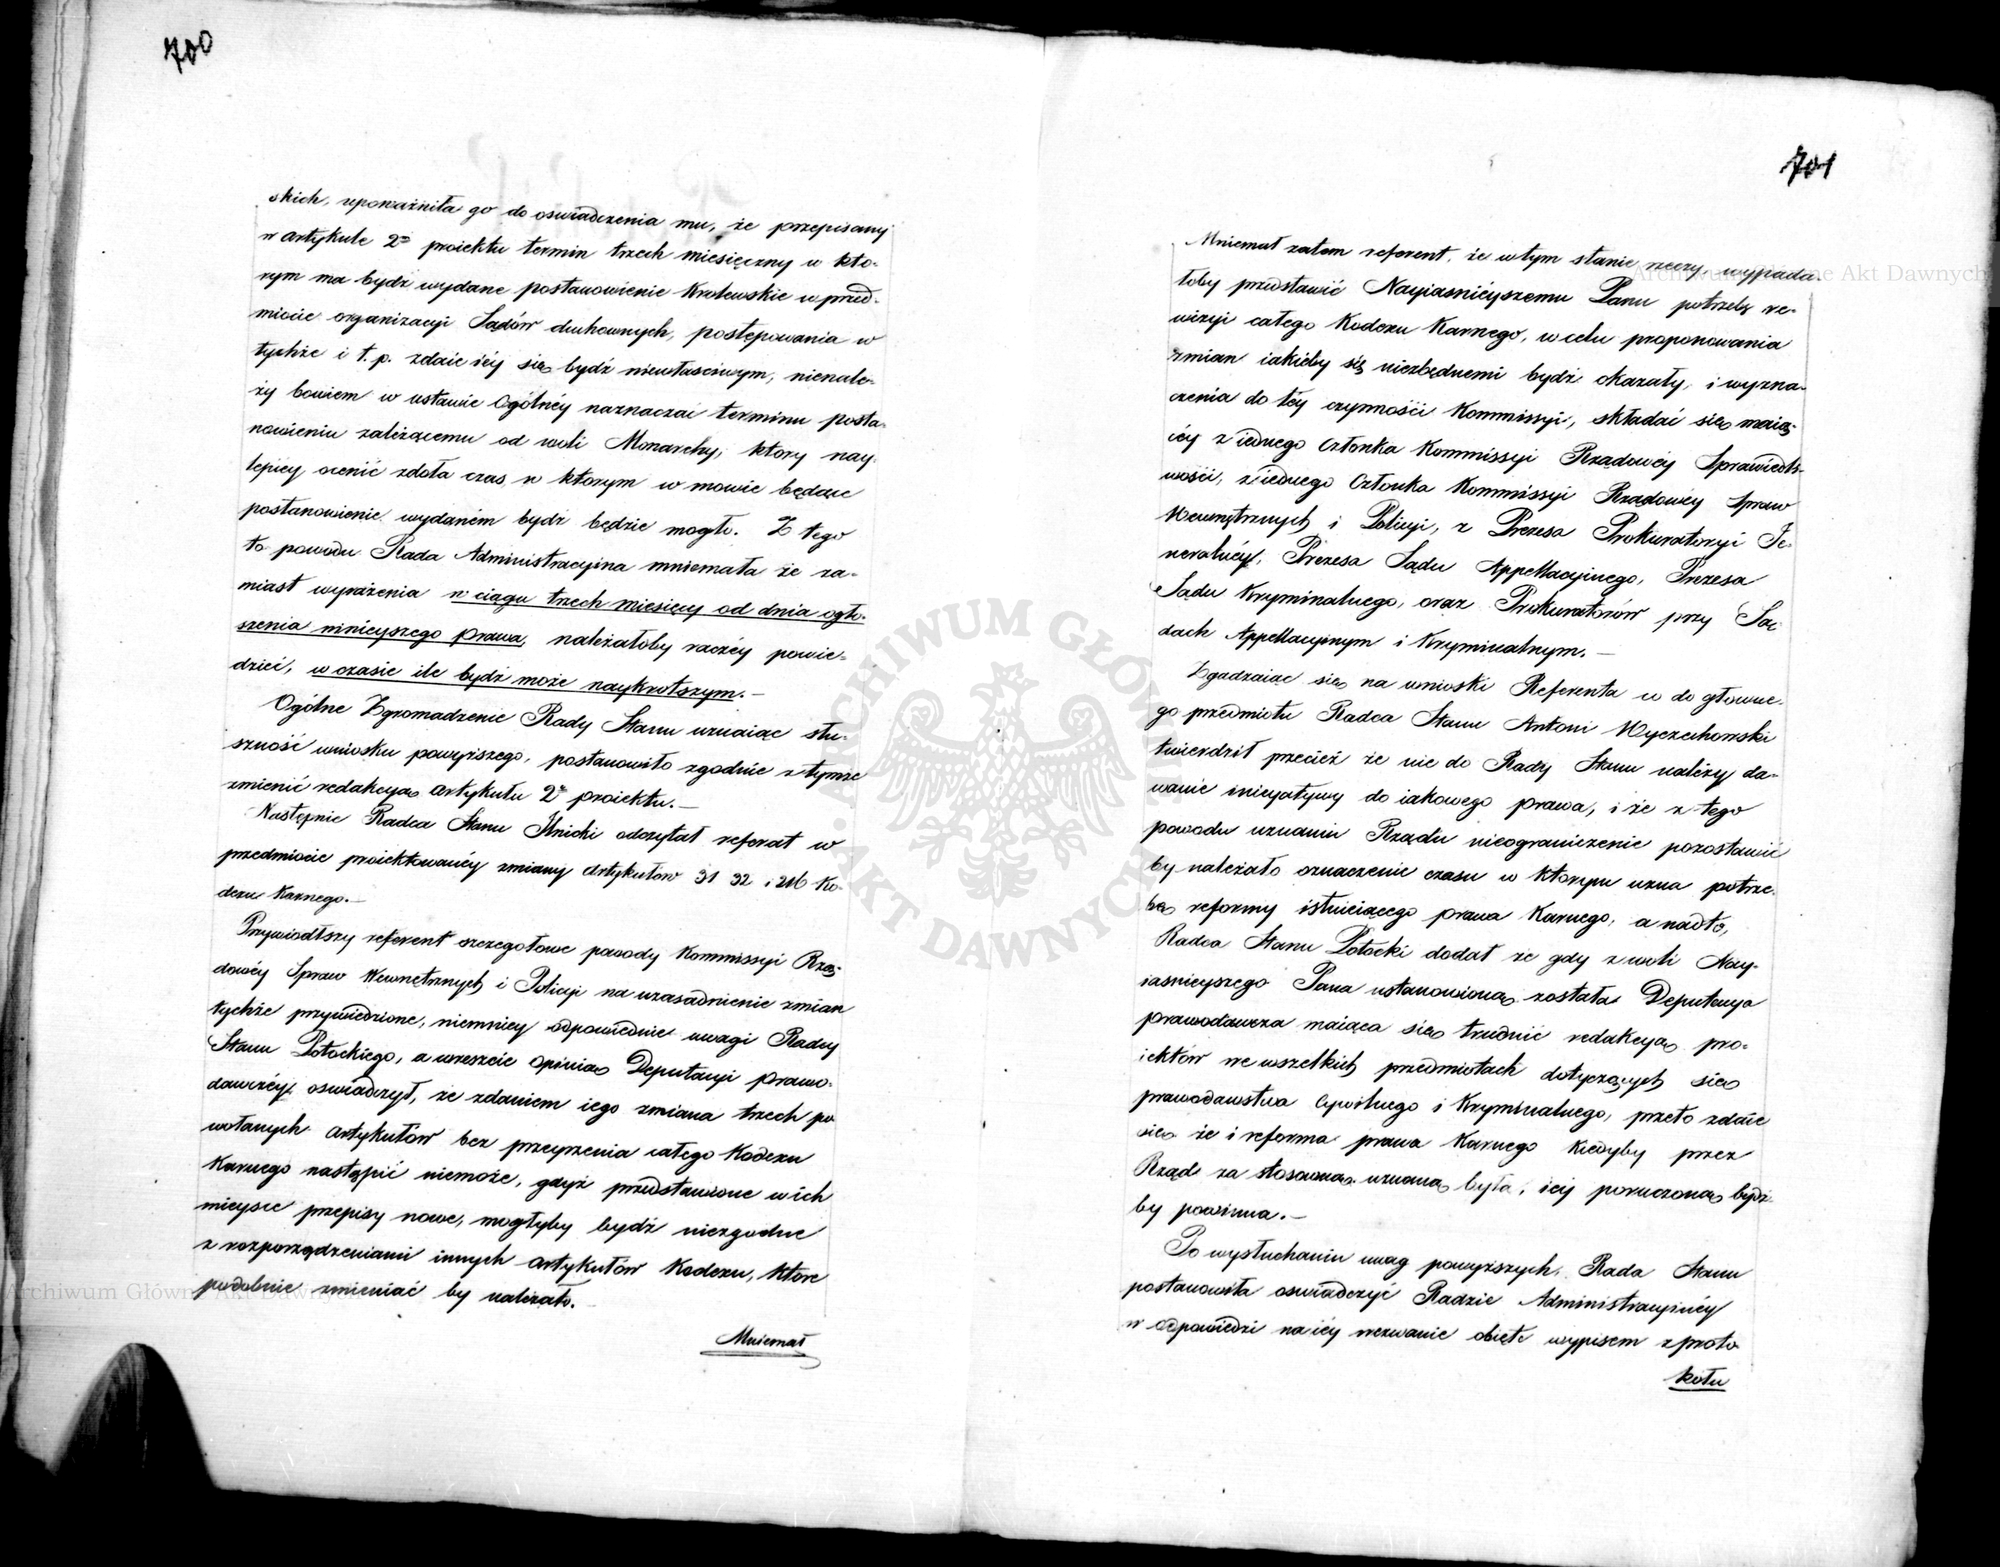 700
skich, upoważniła go do oswiadczenia mu, że przepisany
w artykule 2m proiektu termin trzech miesięczny w kto-
rym ma bydź wydane postanowienie Krolewskie w przed-
miocie organizacyi Sądów duchownych, postępowania w
tychże i t. p. zdaie iéy się bydź niewłaściwym, nienale-
ży bowiem w ustawie Ogólnéy naznaczać terminu posta-
nowieniu zależącemu od woli Monarchy, który nay-
lepiey ocenić zdoła czas w ktorym w mowie będące
postanowienie wydaném bydź będzie mogło. Z tego
to powodu Rada Administracyina mniemała że za-
miast wyrażenia w ciągu trzech miesięcy od dnia ogło-
szenia ninieyszego prawa, należałoby raczéy powie-
dzieć, w czasie ile bydź może naykrotszym. —
Ogólne Zgromadzenie Rady Stanu uznaiąc słu-
szność wniosku powyższego, postanowiło zgodnie z tymże
zmienić redakcyą artykułu 2go proiektu. —
Następnie Radca Stanu Ilnicki odczytał referat w
przedmiocie proiektowanéy zmiany artykułów 31 32 i 216 Ko-
dexu Karnego. —
Przywiodłszy referent szczegołowe powody Kommissyi Rzą-
dowéy Spraw Wewnętrznych i Policyi na uzasadnienie zmian
tychże przywiedzione, niemniey odpowiednie uwagi Radcy
Stanu Potockiego, a wreszcie opinią Deputacyi prawo-
dawczéy, oswiadczył, że zdaniem iego zmiana trzech po
wołanych artykułów bez przeyrzenia całego Kodexu
Karnego nastąpić niemoże, gdyż przedstawione w ich
mieysce przepisy nowe, mogłyby bydź niezgodne
z rozporządzeniami innych artykułów Kodexu, które
podobnie zmieniać by należało.
Mniemał
701
Mniemał zatem referent, że w tym stanie rzeczy wypada-
łoby przedstawić Nayiaśnieyszemu Panu potrzebę re-
wizyi całego Kodexu Karnego, w celu proponowania
zmian iakieby się niezbędnemi bydź okazały, i wyzna-
czenia do téy czynności Kommissyi, składać się maią-
céy z iednego Członka Kommissyi Rządowéy Sprawiedli-
wości, z iednego Członka Kommissyi Rządowéy Spraw
Wewnętrznych i Policyi, z Prezesa Prokuratoryi Je-
neralnéy, Prezesa Sądu Appellacyinego, Prezesa
Sądu Kryminalnego, oraz Prokuratorów przy Są-
dach Appellacyinym i Kryminalnym. —
Zgadzaiąc się na wnioski Referenta co do główne-
go przedmiotu Radca Stanu Antoni Wyczechowski
twierdził przecież że nie do Rady Stanu należy da-
wanie inicyatywy do iakowego prawa, i że z tego
powodu uznaniu Rządu nieograniczenie pozostawić
by należało oznaczenie czasu w ktorym uzna potrze-
bę reformy istnieiącego prawa Karnego, a nadto,
Radca Stanu Potocki dodał że gdy z woli Nay-
iasnieyszego Pana ustanowioną została Deputacya
prawodawcza maiąca się trudnić redakcyą pro-
iektów we wszelkich przedmiotach dotyczących się
prawodawstwa Cywilnego i Kryminalnego, przeto zdaie
się że i reforma prawa Karnego kiedyby przez
Rząd za stosowną uznaną była, iéy poruczoną bydź
by powinna. —
Po wysłuchaniu uwag powyższych, Rada Stanu
postanowiła oświadczyć Radzie Administracyinéy
w odpowiedzi na iéy wezwanie obięte wypisem z proto-
kołu
ARCHIWUM GŁÓWNE AKT DAWNYCH
Archiwum Główne Akt Dawnych
Archiwum Główne Akt Dawnych